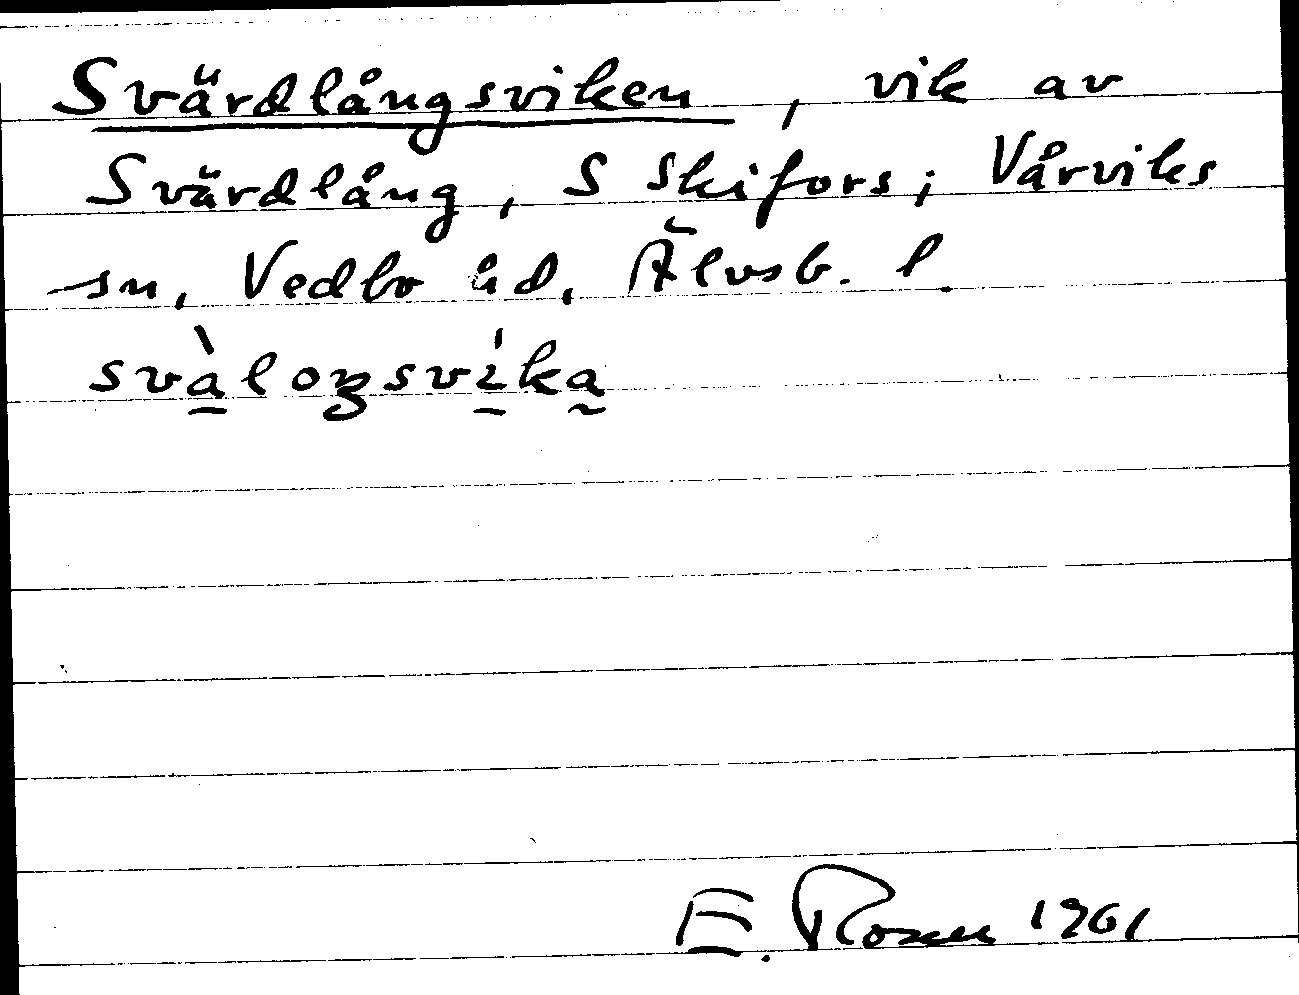 Svärdlångsviken, vik av
Svärdlång, S Skifors; Vårviks
sn, Vedbo hd, Älvsb. l.
svàloŋsvíka
E. Rosen 1961